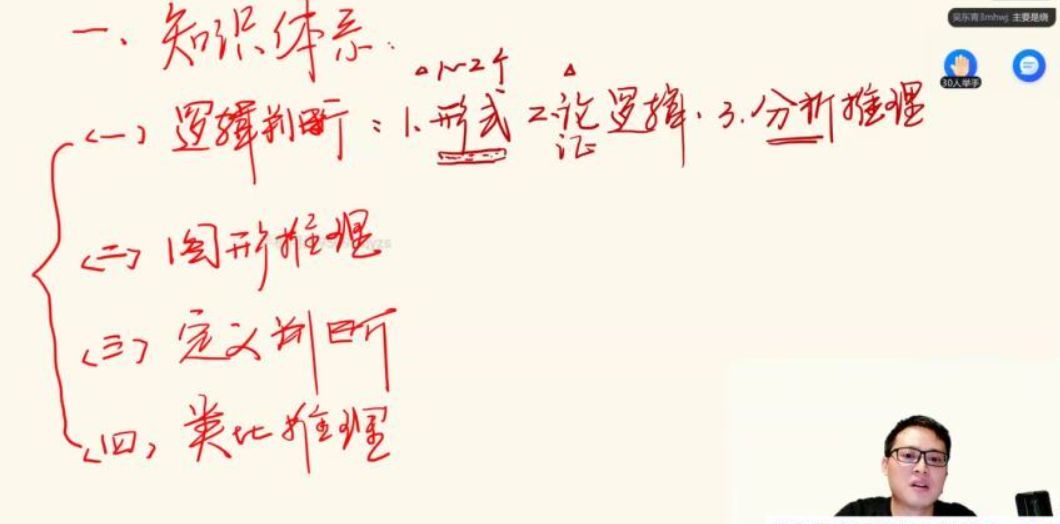 吴东青3mhwj: 主要是绕
一、知识体系:
30人举手
△ 1~2个 △
(一) 逻辑判断: 1.形式 2.论证逻辑. 3.分析推理
(二) 图形推理
(三) 定义判断
(四) 类比推理